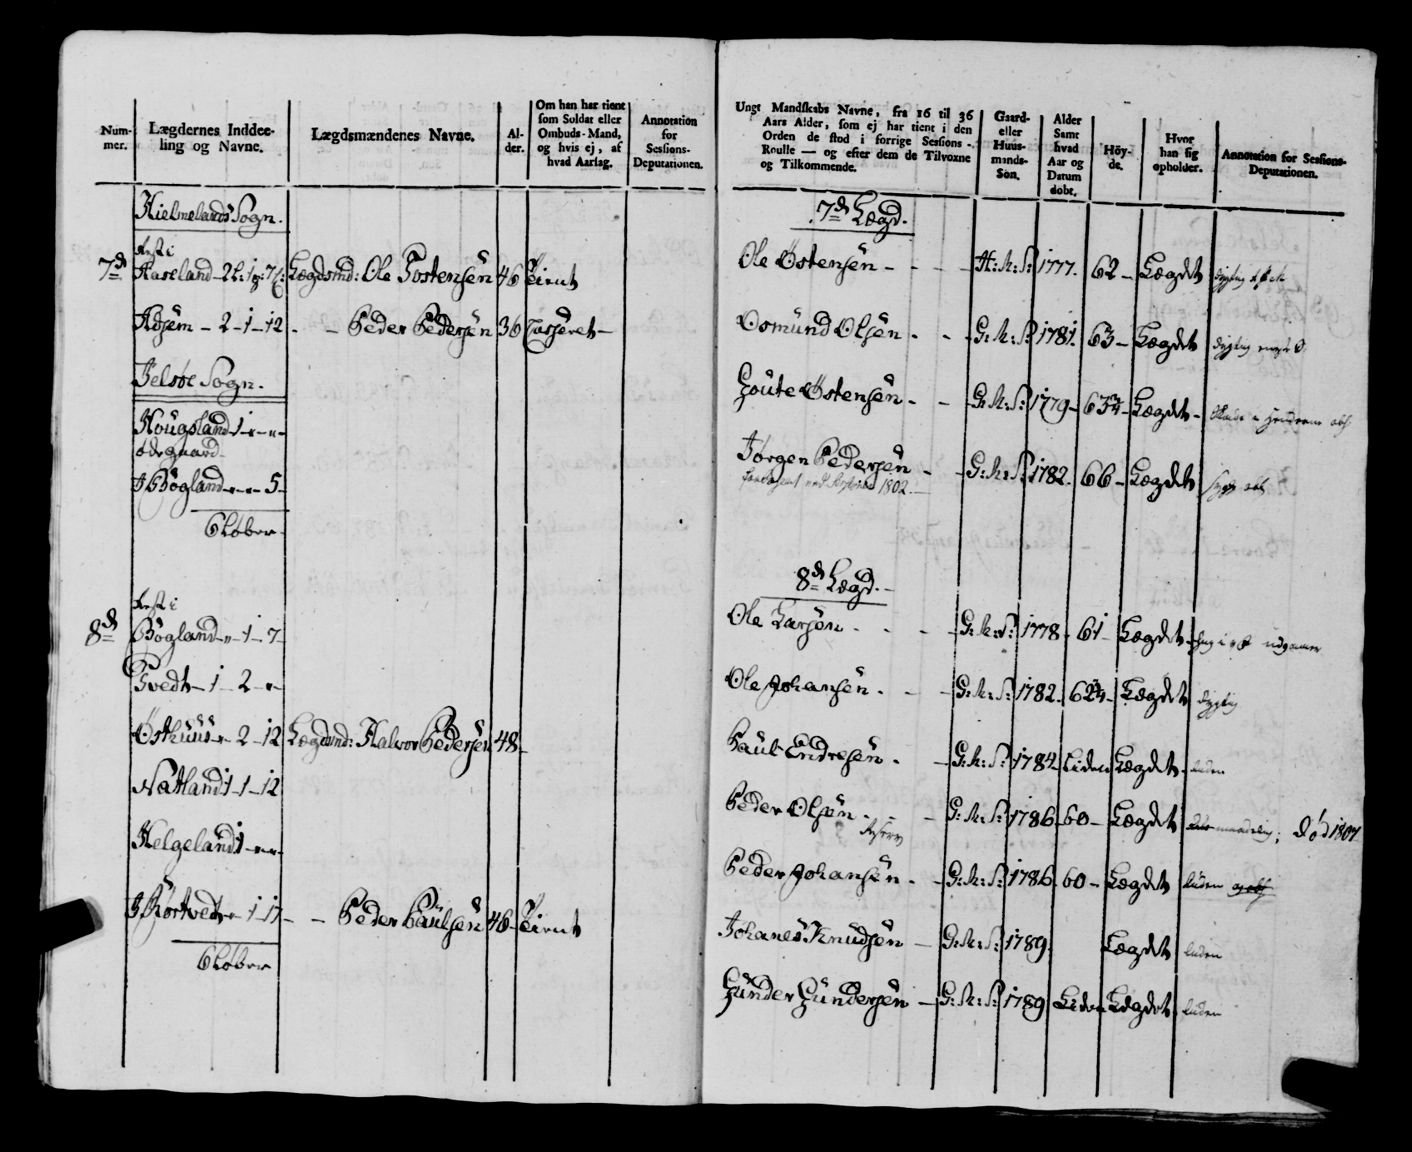 Num-
mer.
Lægdernes Inddee-
ling og Navne.
Lægdsmændenes Navne.
Al-
der.
Om han har tient
som Soldat eller
Ombuds-Mand,
og hvis ej, af
hvad Aarsag.
Annotation
for
Sessions-
Deputationen.
Hielmelands Sogn.
7de
Rest i
Haseland
Lægdsmd: Ole Tostensen 46 Tient
Aasem - 2 - 1 - 12 - - Peder Pedersen 36 Casseret -
Jelsøe Sogn.
Hougsland 1 - " - "
ødegaard
Bøgland - " - " 5 -
6 Løber
8de
Rest i
Bøgland - " - 1 - 7
Tvedt - 1 - 2 - "
Østhuus " - 2 - 12 Lægdsmd: Halvor Pedersen 48 -
Natland 1 - 1 - 12
Helgeland 1 - " - "
Kortvedt " - 1 - 17 - - Peder Paulsen 46 - Tient
6 Løber
Ungt Mandskabs Navne, fra 16 til 36
Aars Alder, som ej har tient i den
Orden de stod i forrige Sessions-
Roulle — og efter dem de Tilvoxne
og Tilkommende.
Gaard-
eller
Huus-
mands-
Søn.
Alder
Samt
hvad
Aar og
Datum
døbt.
Höy-
de.
Hvor
han sig
opholder.
Annotation for Sessions-
Deputationen.
7de Lægd.
Ole Østensen - - - - H: M: S: 1777. 62 - Lægdet dygtig
Osmund Olsen - - - G: M: S: 1781. 63 - Lægdet dygtig
Goute Østensen - - G: M: S: 1779 - 63¾ - Lægdet -
Jørgen Pedersen - - G: M: S: 1782. 66 - Lægdet
1802
8de Lægd. -
Ole Larsen - - - - G: M: S: 1778 - 61 - Lægdet -
Ole Johansen - - - G: M: S: 1782. 62¾ - Lægdet dygtig
Paul Endresen - - G: M: S: 1784. Liden Lægdet - liden
Peder Olsen - - G: M: S: 1786. 60 - Lægdet død 1807
Peder Johansen - - G: M: S: 1786. 60 - Lægdet liden
Johanes Knudsen - G: M: S: 1789. Lægdet liden
Gunder Gundersen - G: M: S: 1789 Liden Lægdet liden